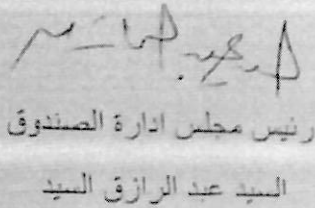 رئيس مجلس ادارة الصندوق
السيد عبد الرازق السيد